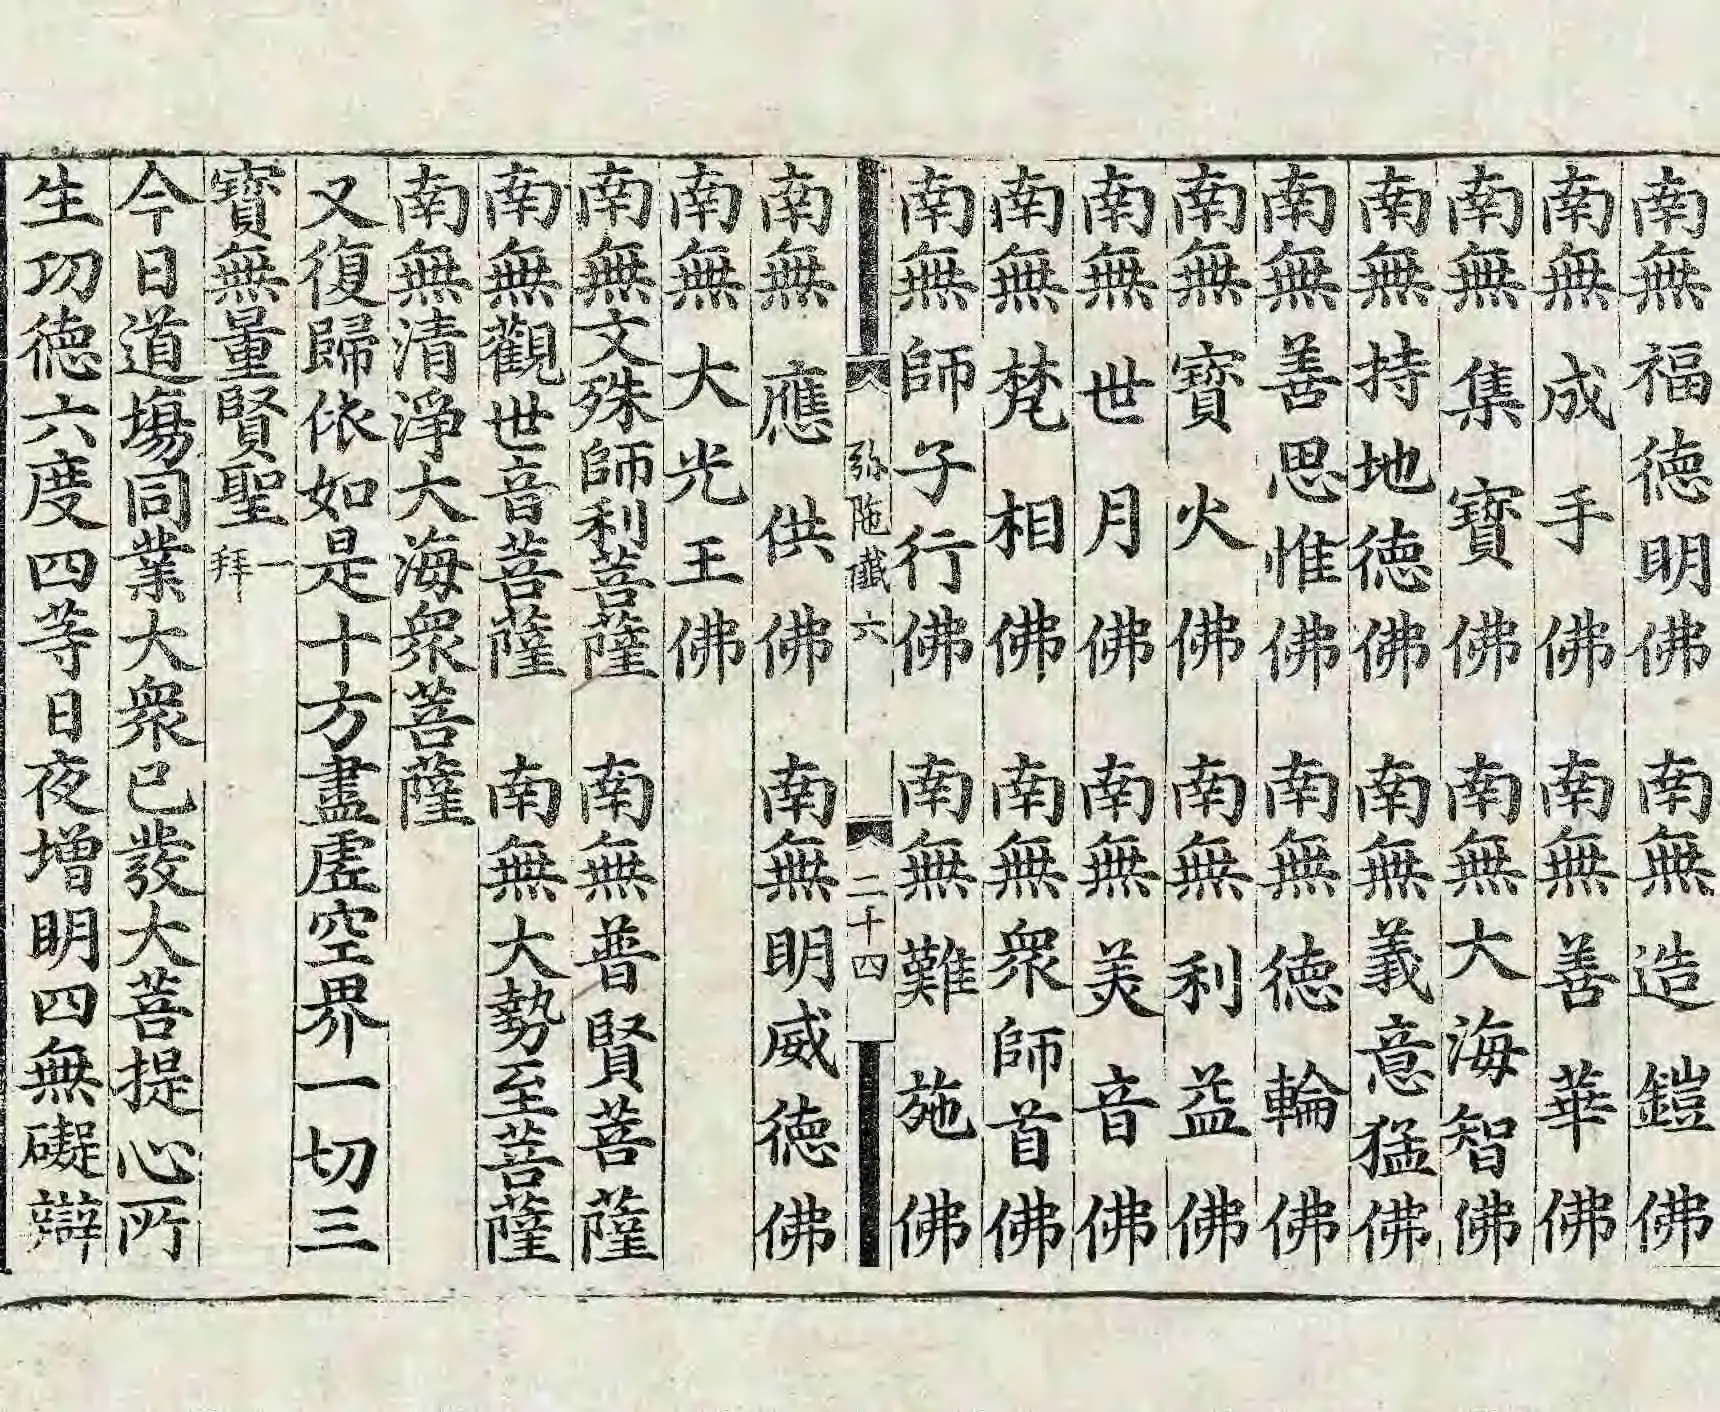 南無福德明佛　南無造鎧佛
南無成手佛　南無善華佛
南無集寶佛　南無大海智佛
南無持地德佛　南無義意猛佛
南無善思惟佛　南無德輪佛
南無寶火佛　南無利益佛
南無世月佛　南無美音佛
南無梵相佛　南無眾師首佛
南無師子行佛　南無難施佛
弥陁懺六　二十四
南無應供佛　南無明威德佛
南無大光王佛
南無文殊師利菩薩　南無普賢菩薩
南無觀世音菩薩　南無大勢至菩薩
南無清淨大海眾菩薩
又復歸依如是十方盡虛空界一切三
寶無量賢聖一拜
今日道場同業大眾已發大菩提心所
生功德六度四等日夜增明四無礙辯